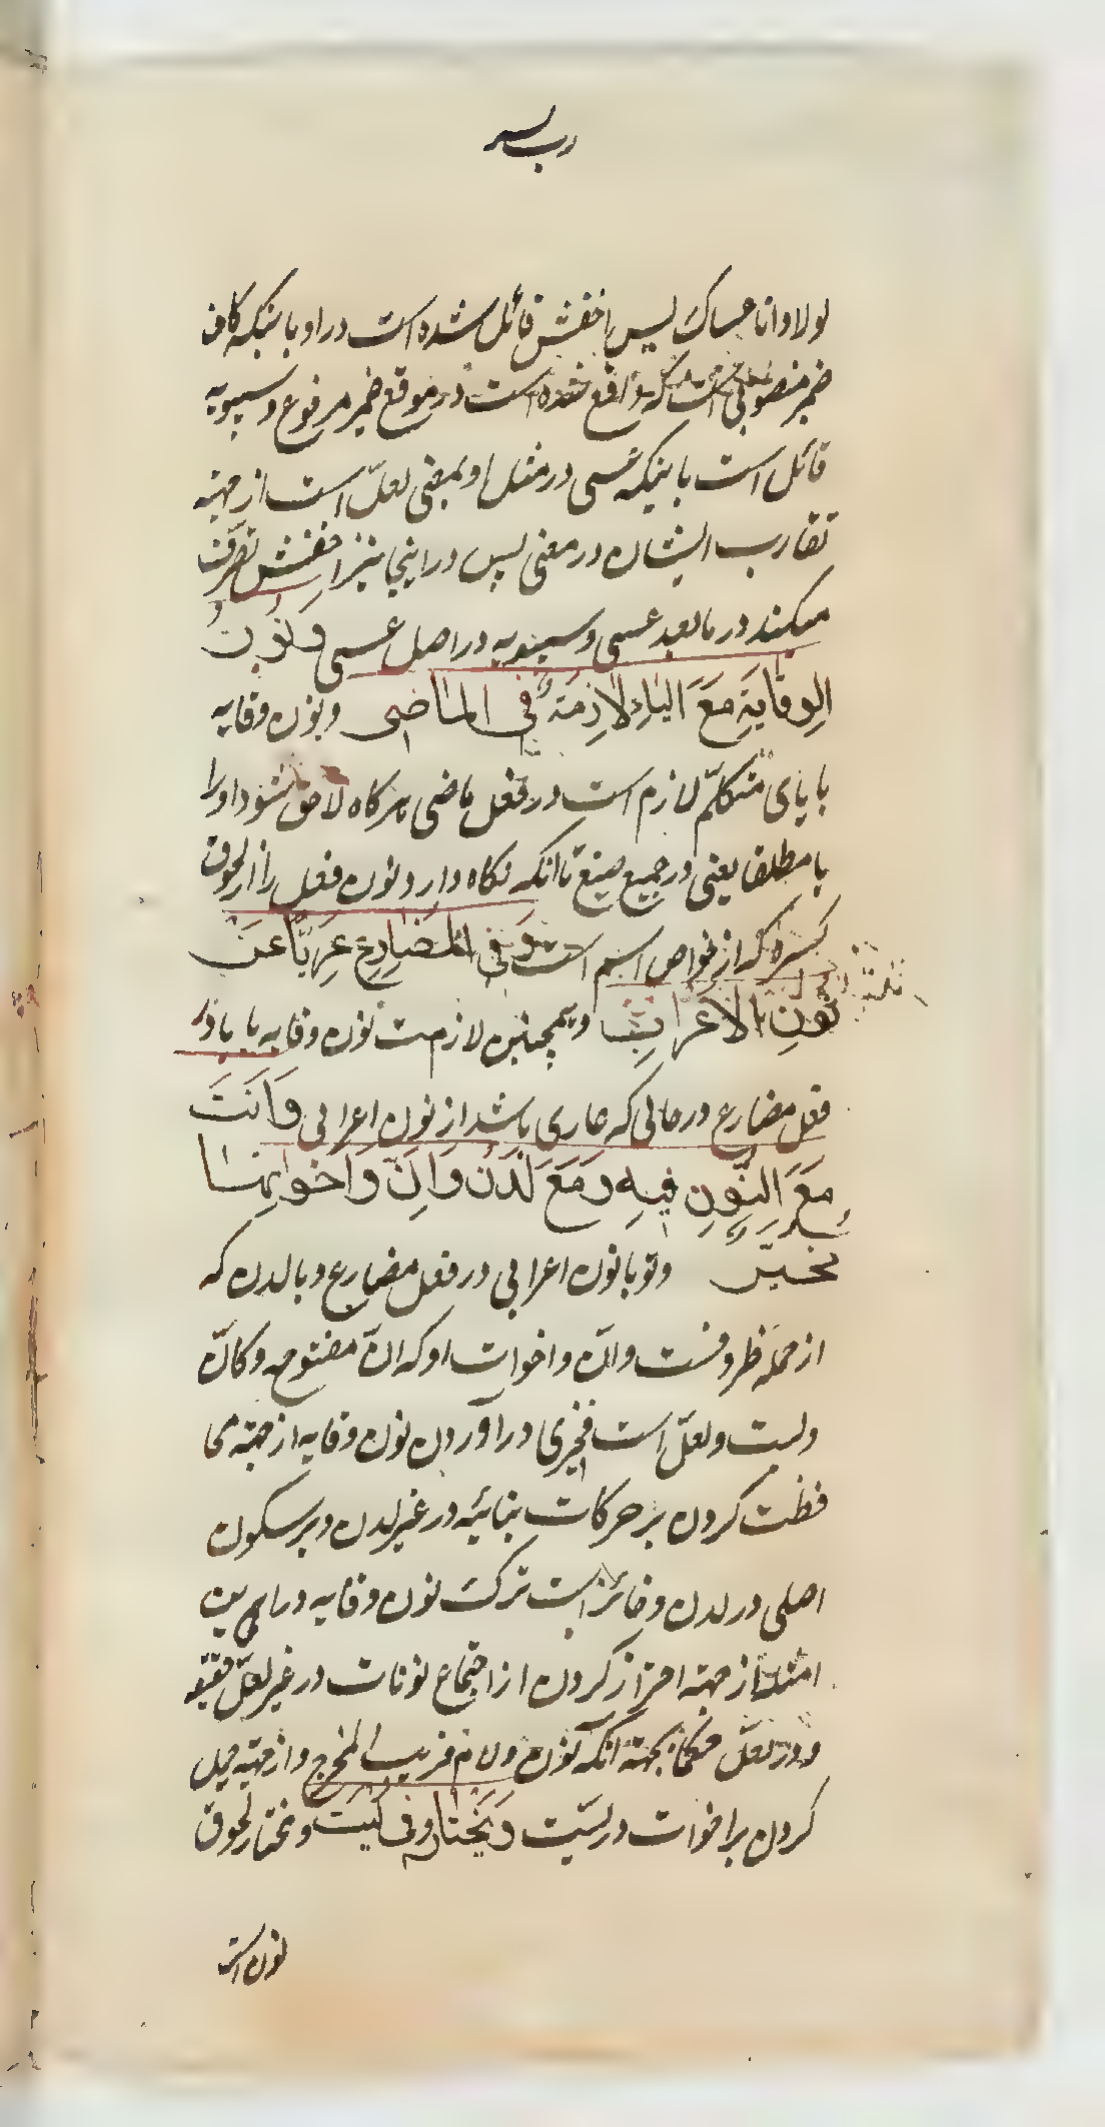 لولا و اما عساک پس اخفش قائل شده است در او باینکه کاف
ضمیر منصوبی است که واقع شده است در موقع ضمیر مرفوع و سیبویه
قائل است باینکه عسی در مثل او بمعنی لعلّ است از جهته
تقارب ایشان در معنی پس در اینجا نیز اخفش تصرف
میکند در مابعد عسی و سیبویه در اصل عسی وَنُونُ
الوِقَايَةِ مَعَ اليَاءِ لَازِمَةٌ فِى المَاضِى و نون وقایه
با یای متکلّم لازم است در فعل ماضی هر کاه لاحق شود او را
یا مطلقا یعنی در جمیع صیغ تا آنکه نکاه دارد نون فعل را از لحوق
کسره که از خواص اسم است وَفِى المُضَارِعِ عَرِيًّا عَنْ
نُونِ الاعْرَابِ و همچنین لازمست نون وقایه با یا در
فعل مضارع در حالی که عاری باشد از نون اعرابی وَأَنْتَ
مَعَ النُّونِ فِيهِ وَمَعَ لَدُنْ وَاِنَّ وَاَخَوَاتِهَا
مُخَيَّرٌ و تو با نون اعرابی در فعل مضارع و با لدن که
از جمله ظروفست و انّ و اخوات او که انّ مفتوحه و کانّ
و لیت و لعلّ است مخیری در آوردن نون وقایه از جهته محا
فظت کردن بر حرکات بنائیه در غیر لدن و بر سکون
اصلی در لدن و جائز است ترک نون وقایه در این
امثله از جهته احتراز کردن از اجتماع نونات در غیر لعلّ حقیقة
و در لعلّ حکما بجهته آنکه نون و لام قریب المخرج و از جهته حمل
کردن بر اخوات در لیت وَيُخْتَارُ فِى لَيْتَ و مختار لحوق
نون است